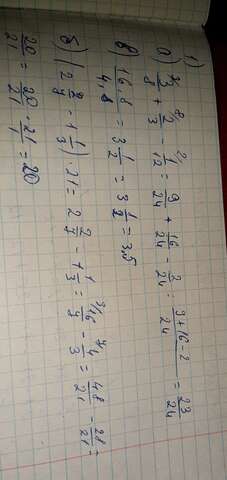 1)
а) 3/8 + 2/3 - 1/12 = 9/24 + 16/24 - 2/24 = (9+16-2)/24 = 23/24
в) 16,8/4,8 = 3 1/2 = 3 1/2 = 3,5
б) (2 2/7 - 1 1/3) · 21 = 2 2/7 - 1 1/3 = 16/7 - 4/3 = 48/21 - 28/21 =
20/21 = 20/21 · 21/1 = 20